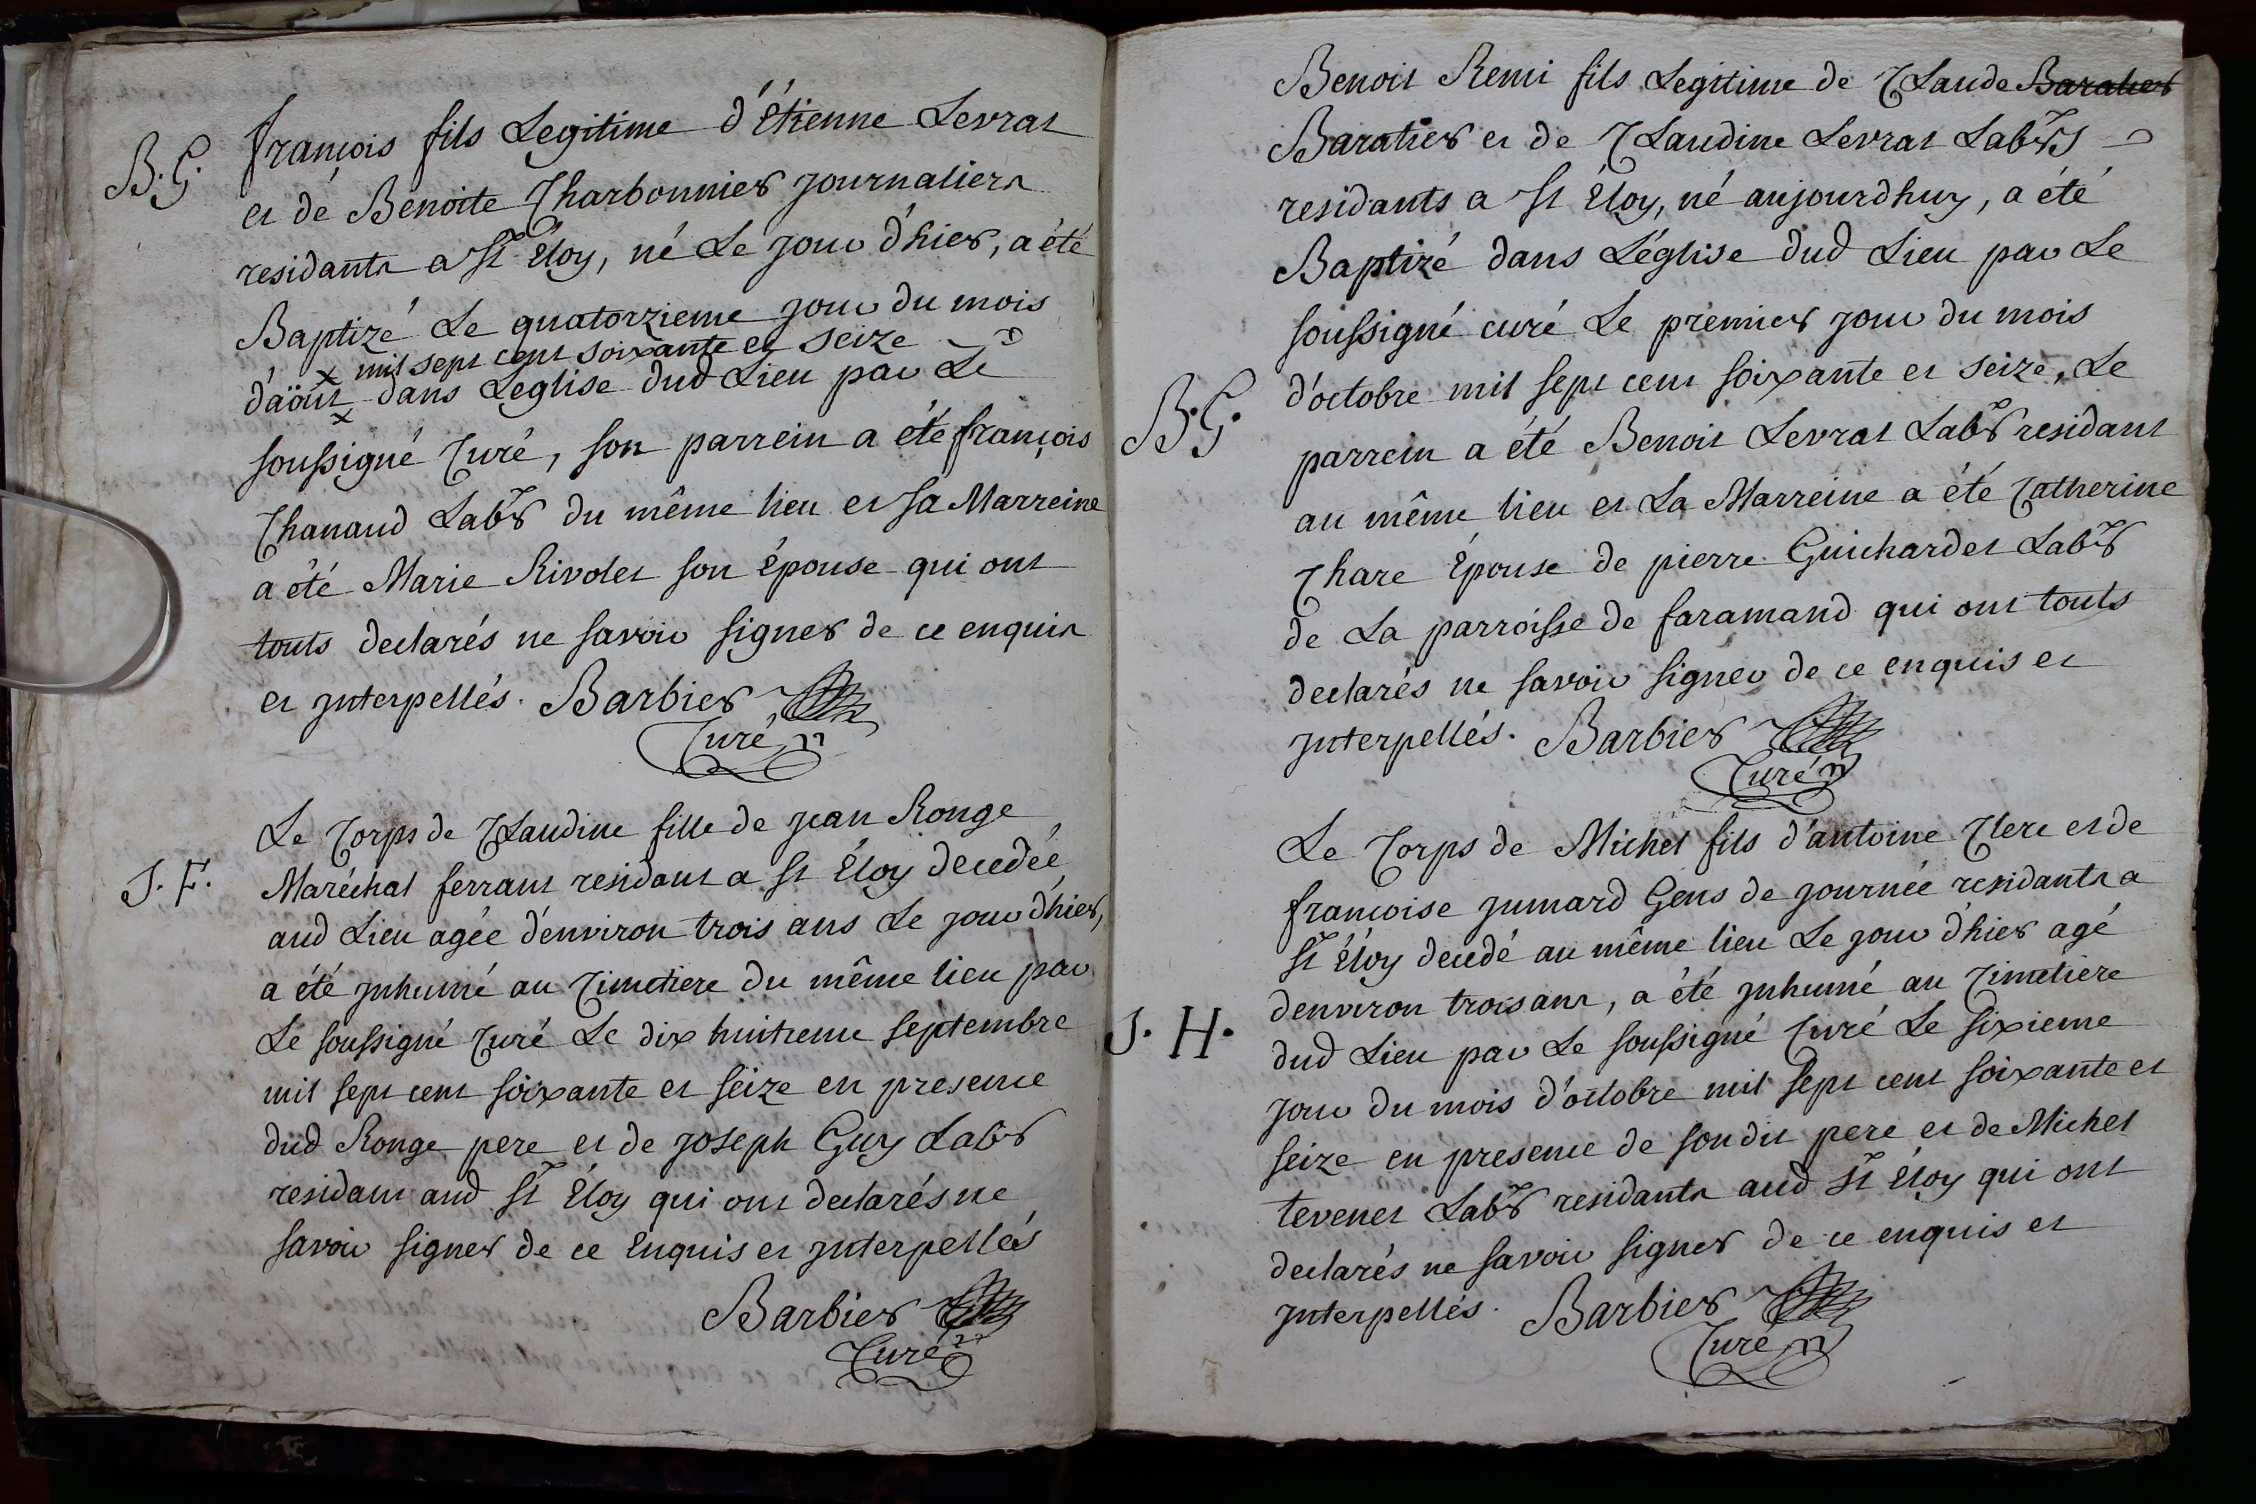 B. G.
françois fils Legitime d'Étienne Levrat
et de Benoite Charbonnier journaliers
residants a St Éloy, né Le jour d'hier, a été
Baptizé Le quatorzieme jour du mois
x mil sept cent soixante et seize
d'aöut x dans Leglise dud Lieu par Le
soussigné Curé, son parrein a été françois
Chanaud Labr du même lieu et sa Marreine
a été Marie Rivolet son Épouse qui ont
touts declarés ne savoir signer de ce enquis
et jnterpellés. Barbier
Curé
J. F.
Le Corps de Claudine fille de jean Ronge
Maréchal ferrant residant a St Éloy decedée
aud Lieu agée d'environ trois ans Le jour d'hier,
a été jnhumé au Cimetiere du même lieu par
Le soussigné Curé Le dix huitieme septembre
mil sept cent soixante et seize en presence
dud Ronge pere et de joseph Guy Labr
residant aud St Éloy qui ont declarés ne
savoir signer de ce Enquis et jnterpellés
Barbier
Curé
Benoit Remi fils Legitime de Claude Baratier
Baratier et de Claudine Levrat Labrs
residants a St Éloy, né aujourdhuy, a été
Baptizé dans L'église dud Lieu par Le
soussigné curé Le premier jour du mois
B. G.
d'octobre mil sept cent soixante et seize, Le
parrein a été Benoit Levrat Labr residant
au même lieu et La Marreine a été Catherine
Chare Épouse de pierre Guichardet Labr
de La parroisse de faramand qui ont touts
declarés ne savoir signer de ce enquis et
jnterpellés. Barbier
Curé
Le Corps de Michel fils d'antoine Clerc et de
françoise jumard Gens de journée residants a
St Éloy decedé au même lieu Le jour d'hier agé
denviron trois ans, a été jnhumé au Cimetiere
J. H.
dud Lieu par Le soussigné Curé Le sixieme
jour du mois d'octobre mil sept cent soixante et
seize en presence de son dit pere et de Michel
tevenet Labr residants aud St Éloy qui ont
declarés ne savoir signer de ce enquis et
jnterpellés. Barbier
Curé